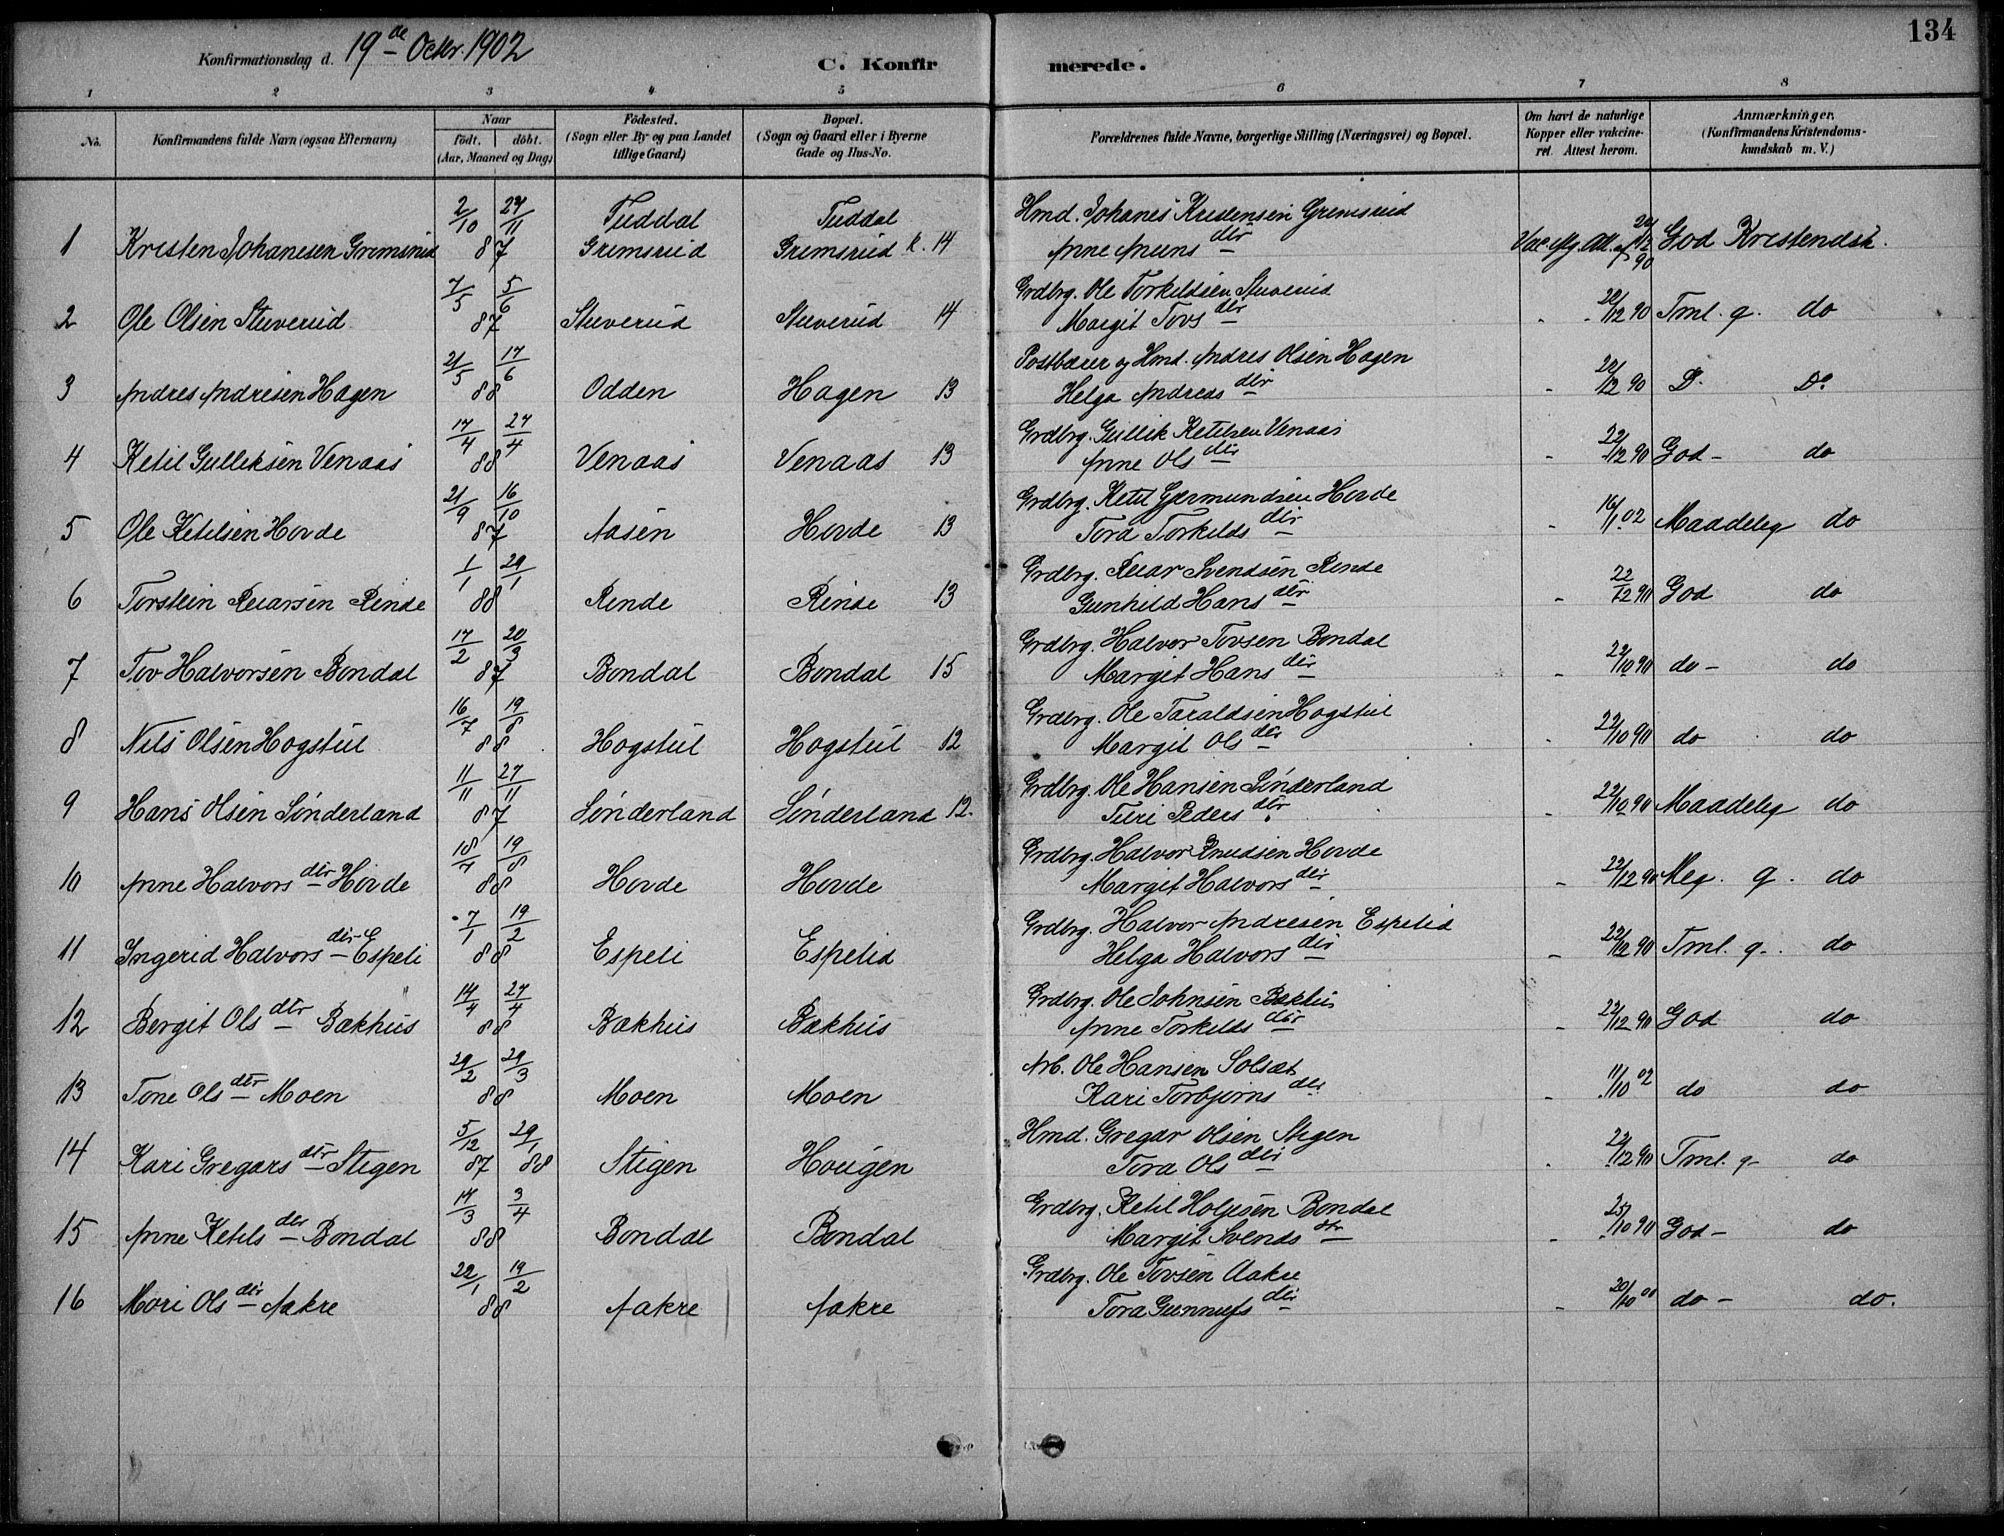 134
Konfirmationsdag d. 19de Octbr. 1902
C. Konfirmerede.
1 2 3 4 5 6 7 8
No. Konfirmandens fulde Navn (ogsaa Efternavn) Naar født. døbt. (Aar, Maaned og Dag) Fødested. (Sogn eller By og paa Landet tillige Gaard) Bopæl. (Sogn og Gaard eller i Byerne Gade og Hus-No. Forældrenes fulde Navne, borgerlige Stilling (Næringsvei) og Bopæl. Om havt de naturlige Kopper eller vakcineret. Attest herom. Anmærkninger. (Konfirmandens Kristendomskundskab m. V.)
2/10 27/11 Tuddal Tuddal Hmd. Johanes Kristensen Gremsrud
1 Kristen Johanesen Gremsrud 87 Gremsrud Gremsrud k. 14 Anne Amuns dtr 22/12 90 God Kristendsk.
7/5 5/6 Grdbrg. Ole Torkildsen Stuverud
2 Ole Olsen Stuverud 87 Stuverud Stuverud 14 Margit Tovs dtr 22/12 90 Tml. g. do
21/5 17/6 Postbærer og Hmd. Andres Olsen Hagen
3 Andres Andresen Hagen 88 Odden Hagen 13 Helga Andreas dtr 22/12 90 D. Do
17/4 27/4 Grdbrg. Gullik Ketilsen Venaas
4 Ketil Gulliksen Venaas 88 Venaas Venaas 13 Anne Ols dtr 22/12 90 God - do
21/9 16/10 Grdbrg. Ketil Gjermundsen Hovde
5 Ole Ketilsen Hovde 87 Aasen Hovde 13 Tora Torkilds dtr 16/1 02 Maadelig do
1/1 29/1 Grdbrg. Ruar Svendsen Rinde
6 Torstein Ruarsen Rinde 88 Rinde Rinde 13 Gunhild Hans dtr 22/12 90 God do
17/2 20/3 Grdbrg. Halvor Tovsen Bondal
7 Tov Halvorsen Bondal 87 Bondal Bondal 15 Margit Hans dtr 22/10 90 do - do
16/7 19/8 Grdbrg. Ole Taraldsen Hogstul
8 Nils Olsen Hogstul 88 Hogstul Hogstul 12 Margit Ols dtr 22/10 90 do do
11/11 27/11 Grdbrg. Ole Hansen Sønderland
9 Hans Olsen Sønderland 87 Sønderland Sønderland 12. Turi Peders dtr. 22/10 90 Maadelig do
18/7 19/8 Grdbrg. Halvor Knudsen Hovde
10 Anne Halvors dtr Hovde 88 Hovde Hovde Margit Halvors dtr 22/12 90 Meg. g. do
7/1 19/2 Grdbrg. Halvor Andresen Espelid
11 Ingerid Halvors dtr Espeli 88 Espeli Espelid Helga Halvors dtr 22/12 90 Tml. g. do
14/4 27/4 Grdbrg. Ole Johnsen Bækhus
12 Bergit Ols dtr Bækhus 88 Bækhus Bækhus Anne Torkilds dtr 22/12 90 God do
29/2 29/3 Arb. Ole Hansen Solsæt
13 Tone Ols dtr Moen 88 Moen Moen Kari Torbjørns dtr 11/10 02 do do
5/12 29/1 Hmd. Gregar Olsen Stigen
14 Kari Gregars dtr Stigen 87 88 Stigen Hougen Tora Ols dtr 22/12 90 Tml. g do
14/3 3/4 Grdbrg. Ketil Holjesen Bondal
15 Anne Ketils dtr Bondal 88 Bondal Bondal Margit Svends dtr 25/10 90 God - do
22/1 19/2 Grdbrg. Ole Tovsen Aakre
16 Mari Ols dtr Aakre 88 Aakre Aakre Tora Gunnufs dtr 20/10 00 do - do.